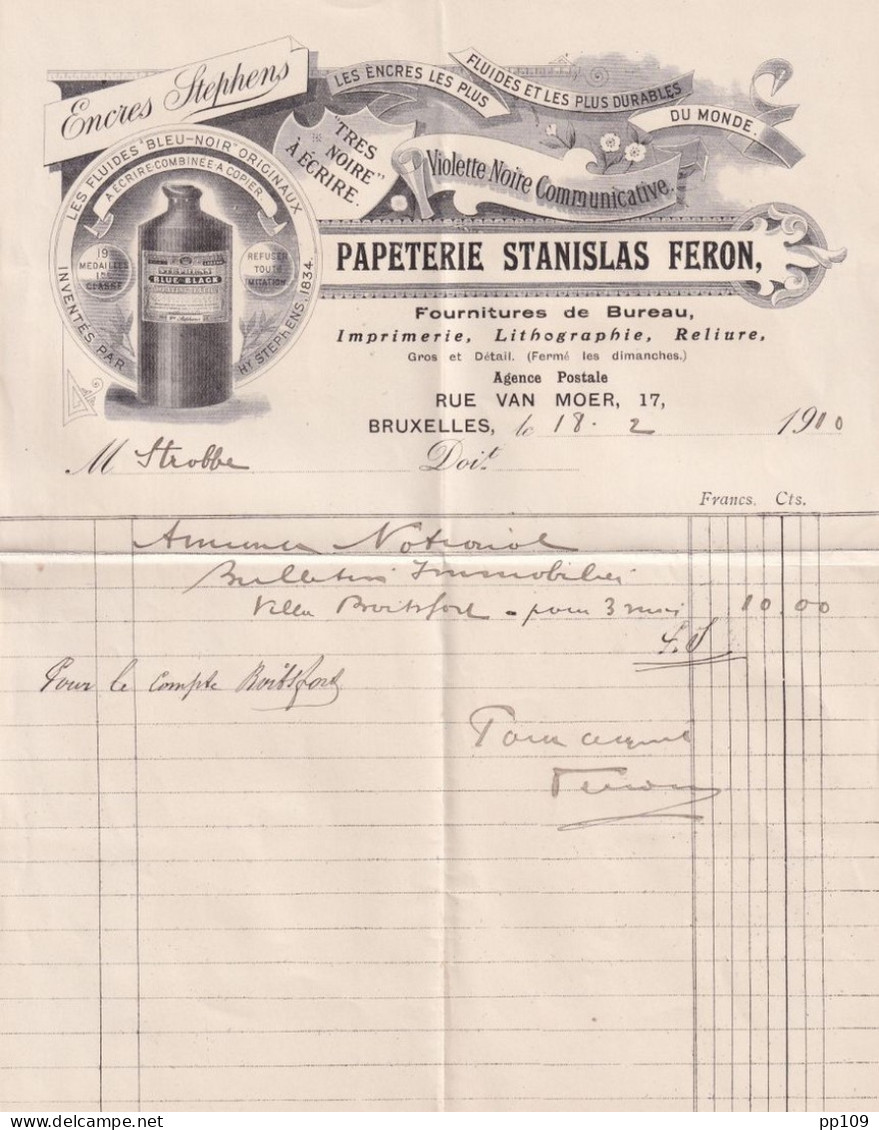 Encres Stephens
LES ENCRES LES PLUS
FLUIDES ET LES PLUS DURABLES
DU MONDE.
"TRES
NOIRE"
À ECRIRE.
Violette Noire Communicative.
LES FLUIDES "BLEU-NOIR" ORIGINAUX
A ECRIRE·COMBINÉE·A COPIER.
19
MEDAILLES
1RE
CLASSE
REFUSER
TOUTE
IMITATION
STEPHENS
BLUE BLACK
INVENTÉS PAR
HY STEPHENS, 1834.
PAPETERIE STANISLAS FERON,
Fournitures de Bureau,
Imprimerie, Lithographie, Reliure,
Gros et Détail. (Fermé les dimanches.)
Agence Postale
RUE VAN MOER, 17,
BRUXELLES, le 18·2 1910
M Strobbe Doit
Francs. Cts.
Annonce Notarial
Bulletin Immobilier
Villa Boitsfort - pour 3 mois 10.00
Pour le compte Boitsfort
Pour acquit
Feron
delcampe.net
pp109